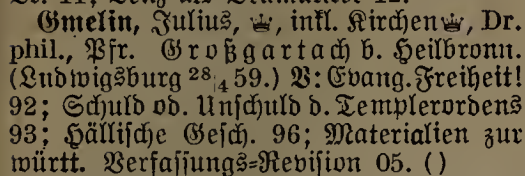 Gmelin, Julius, ♛, inkl. Kirchen♛, Dr.
phil., Pfr. Großgartach b. Heilbronn.
(Ludwigsburg 28|4 59.) V: Evang. Freiheit!
92; Schuld od. Unschuld d. Templerordens
93; Hällische Gesch. 96; Materialien zur
württ. Verfassungs-Revision 05. ()